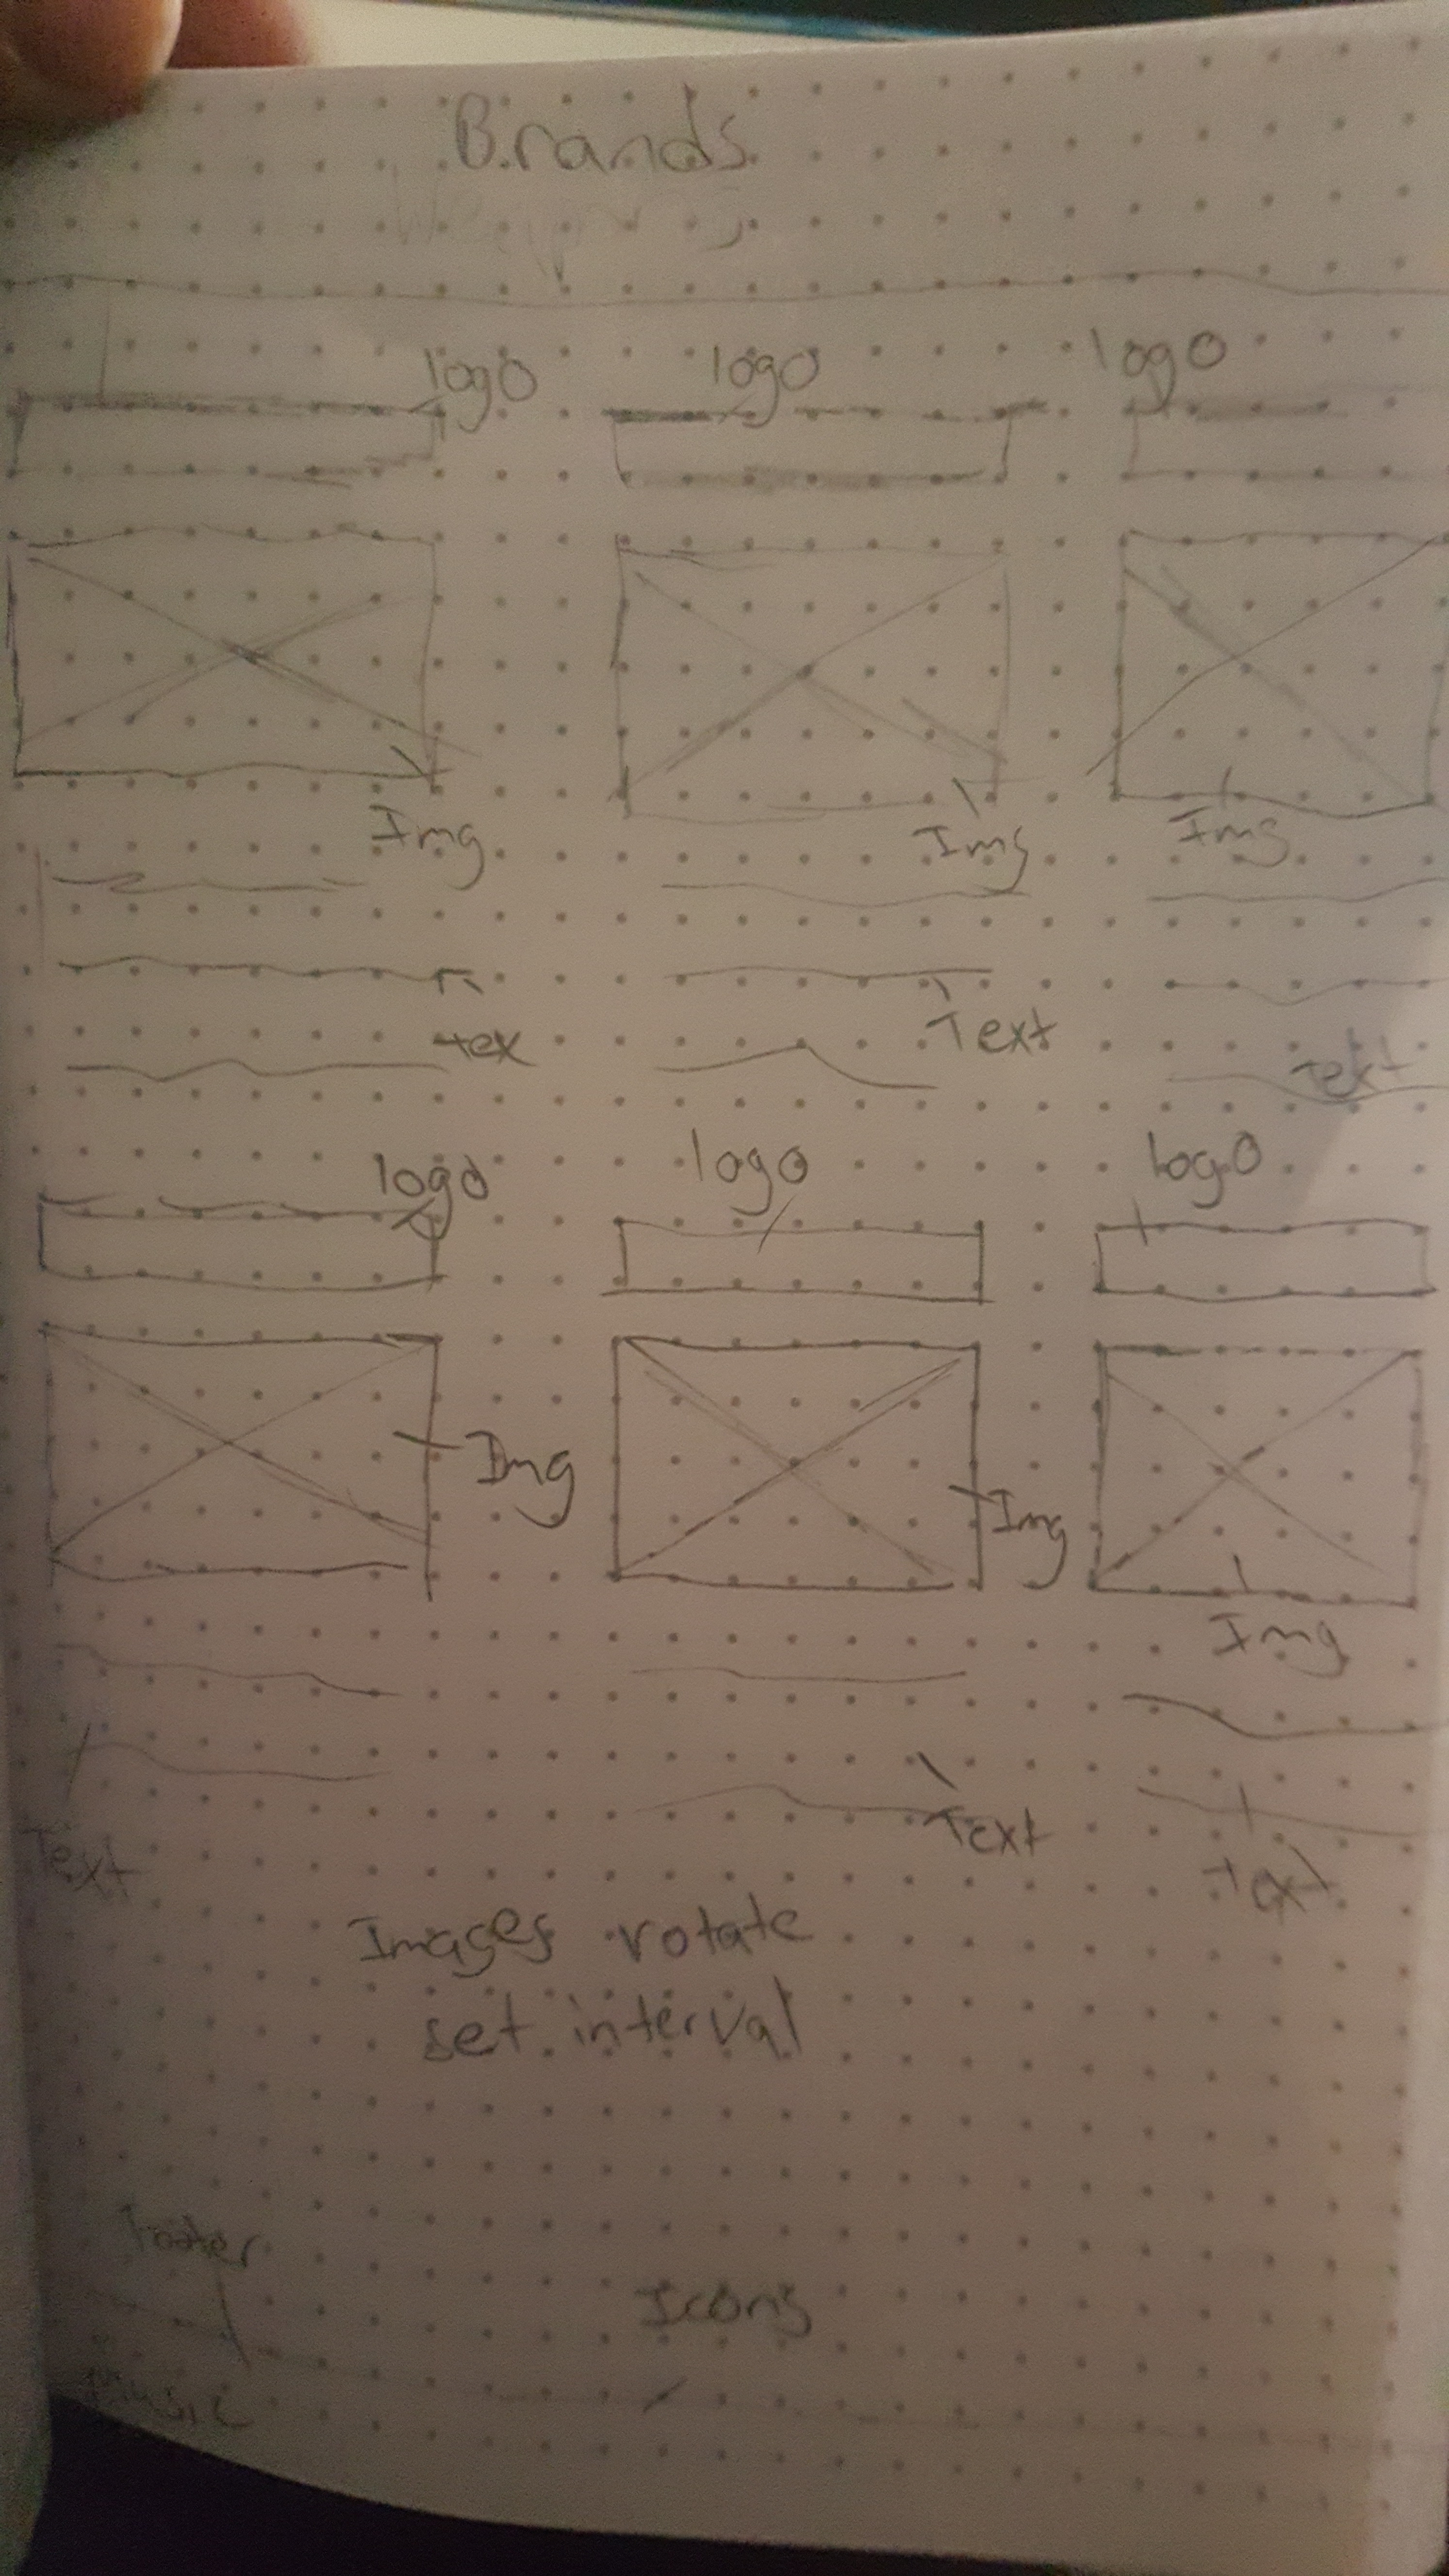 Brands
logo logo logo
Img Img Img
tex Text Text
logo logo logo
Img Img Img
Text Text Text
Images rotate
set interval
footer
Icons
Music